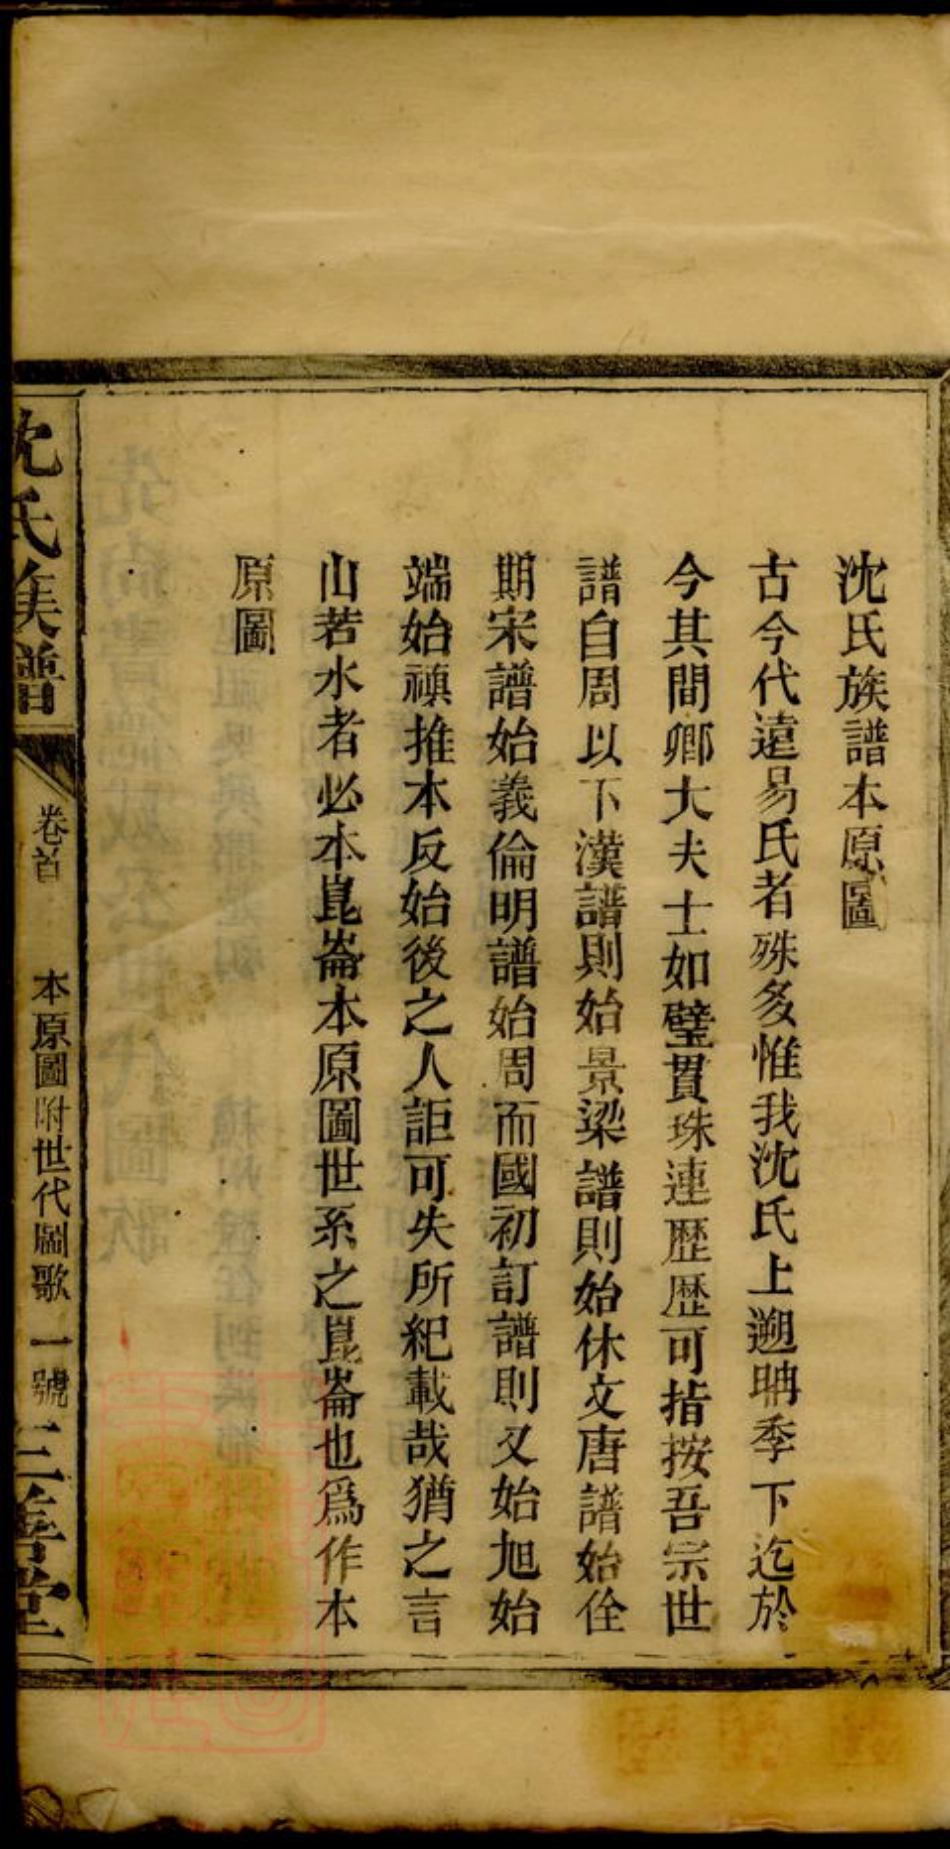 沈氏族譜本原圖
古今代遠易氏者殊多惟我沈氏上遡聃季下迄於
今其間卿大夫士如璧貫珠連歷歷可指按吾宗世
譜自周以下漢譜則始景梁譜則始休文唐譜始佺
期宋譜始義倫明譜始周而國初訂譜則又始旭始
端始禎推本反始後之人詎可失所紀載哉猶之言
山若水者必本崑崙本原圖世系之崑崙也爲作本
原圖
沈氏族譜
卷首
本原圖附世代圖歌 一號
三善堂